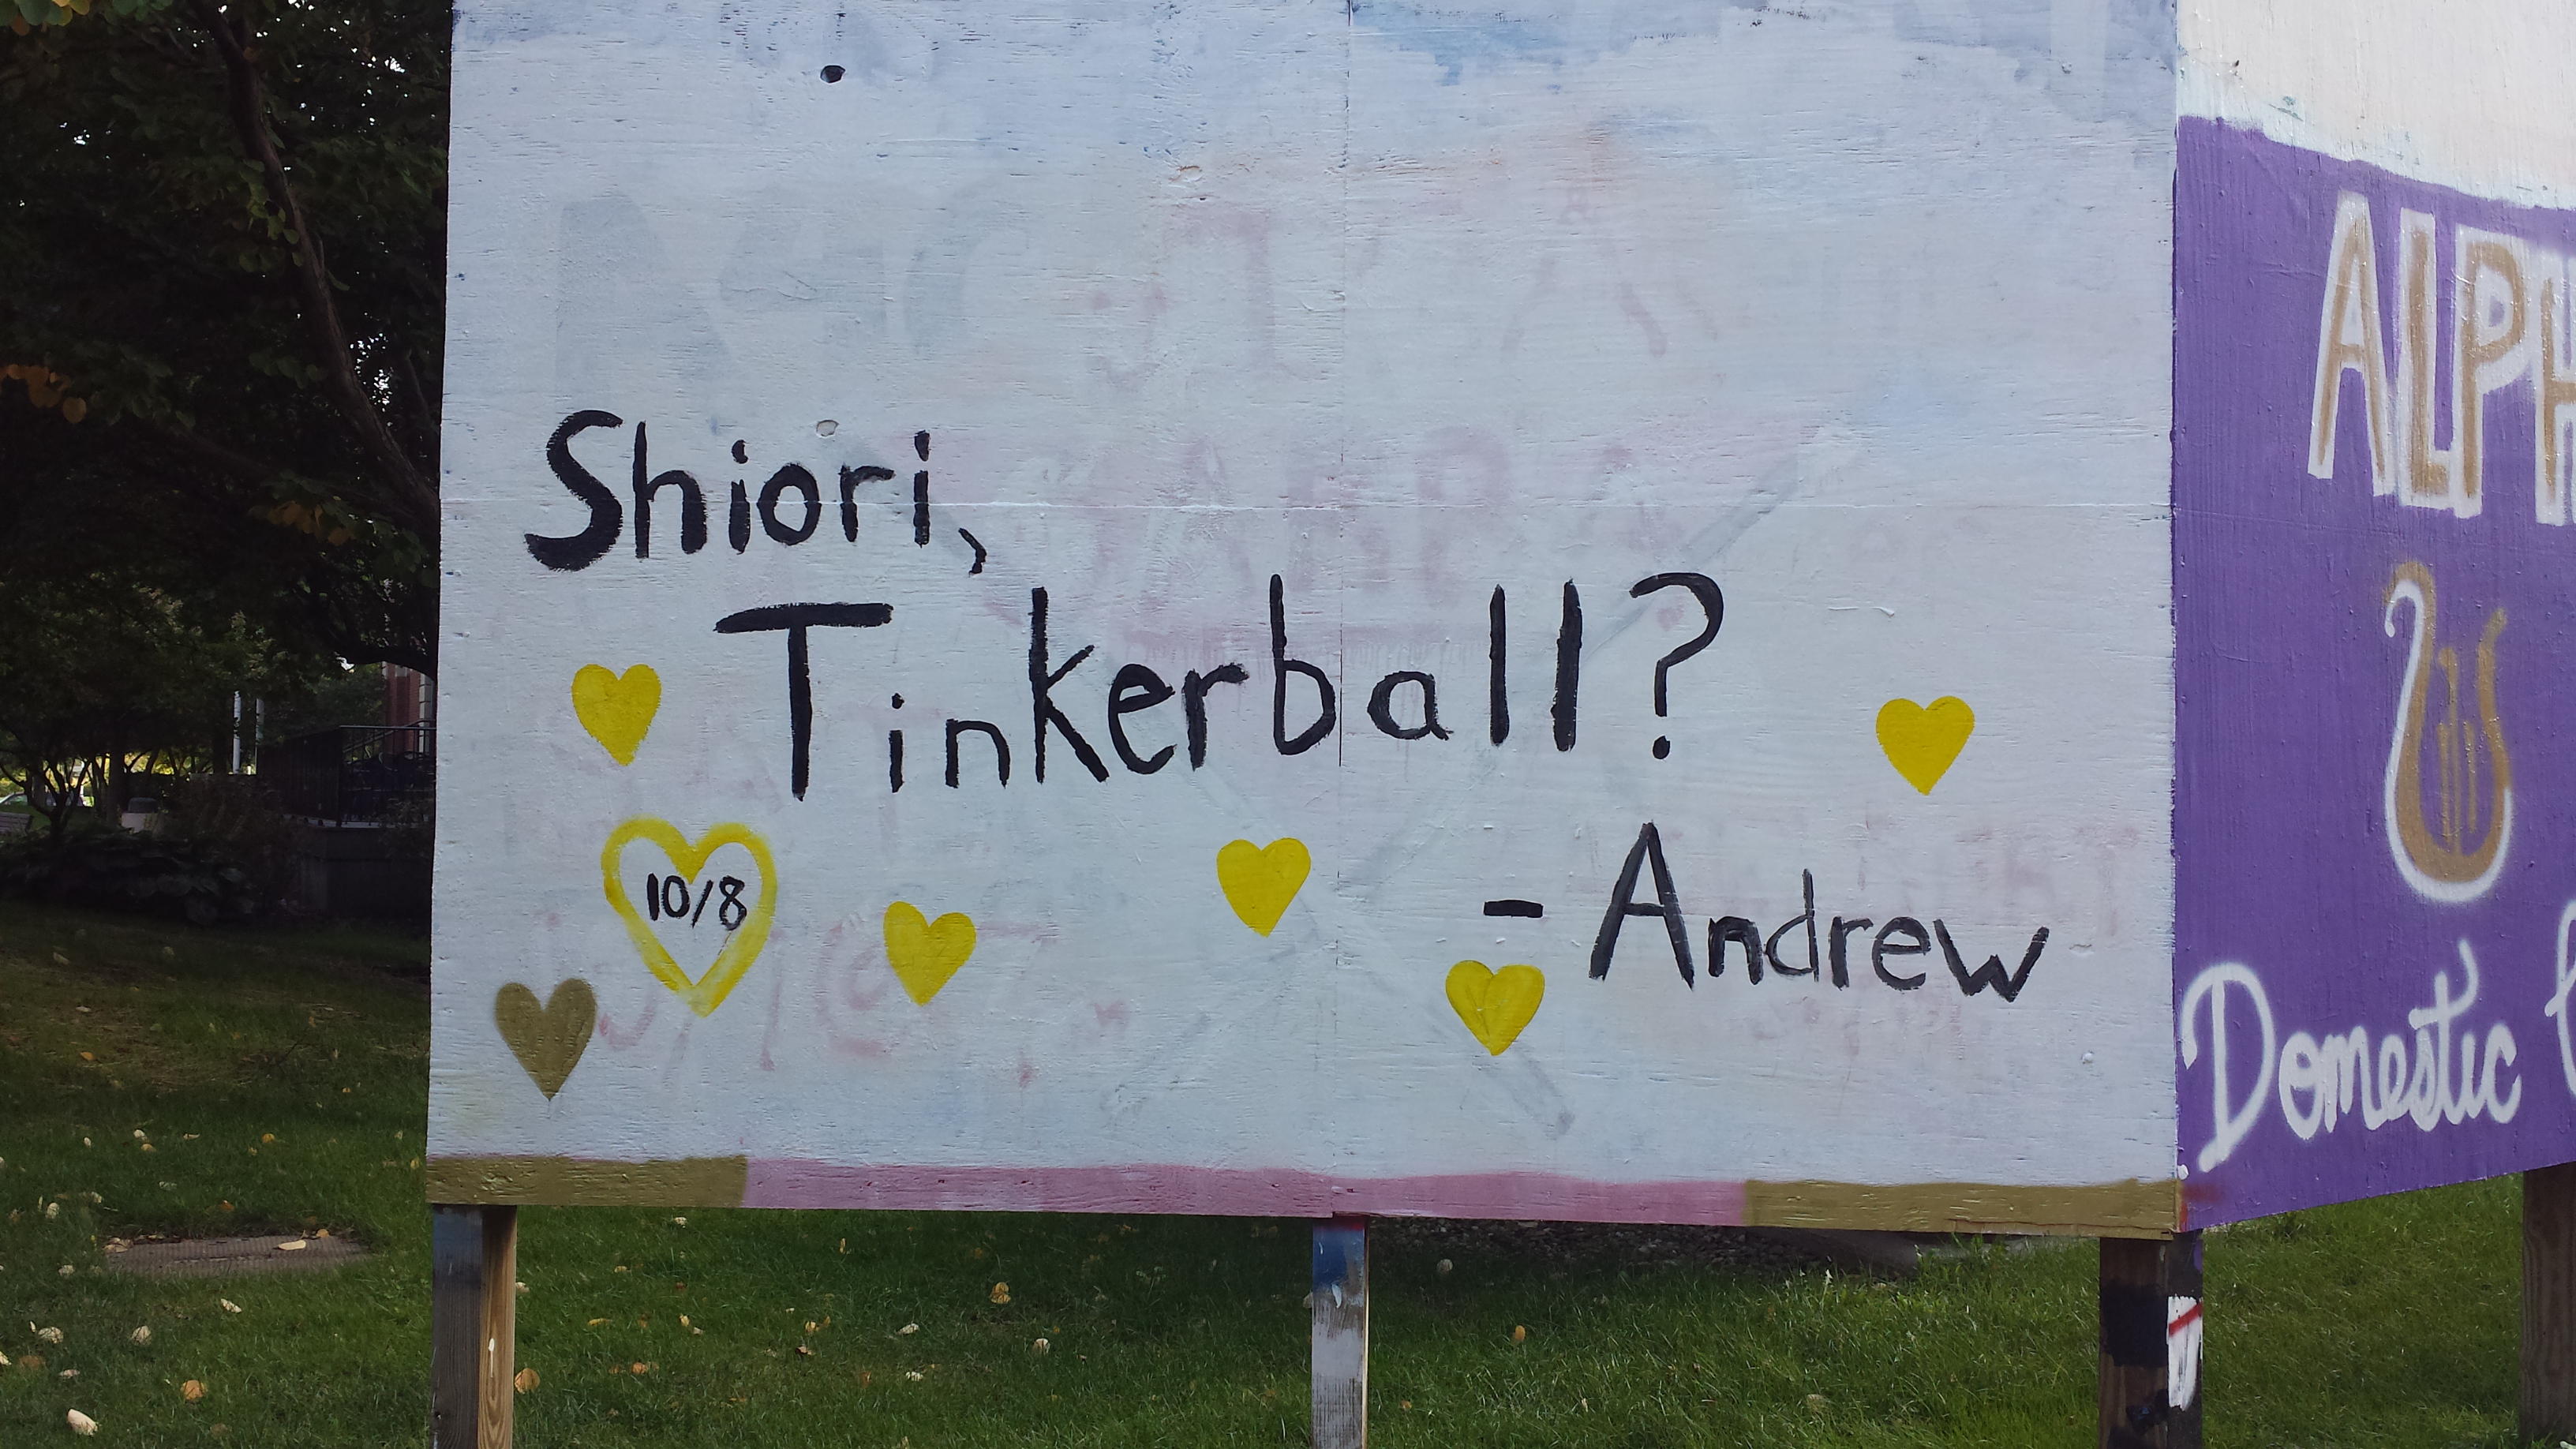 Shiori,
Tinkerball?
10/8
- Andrew
ALPH
Domestic